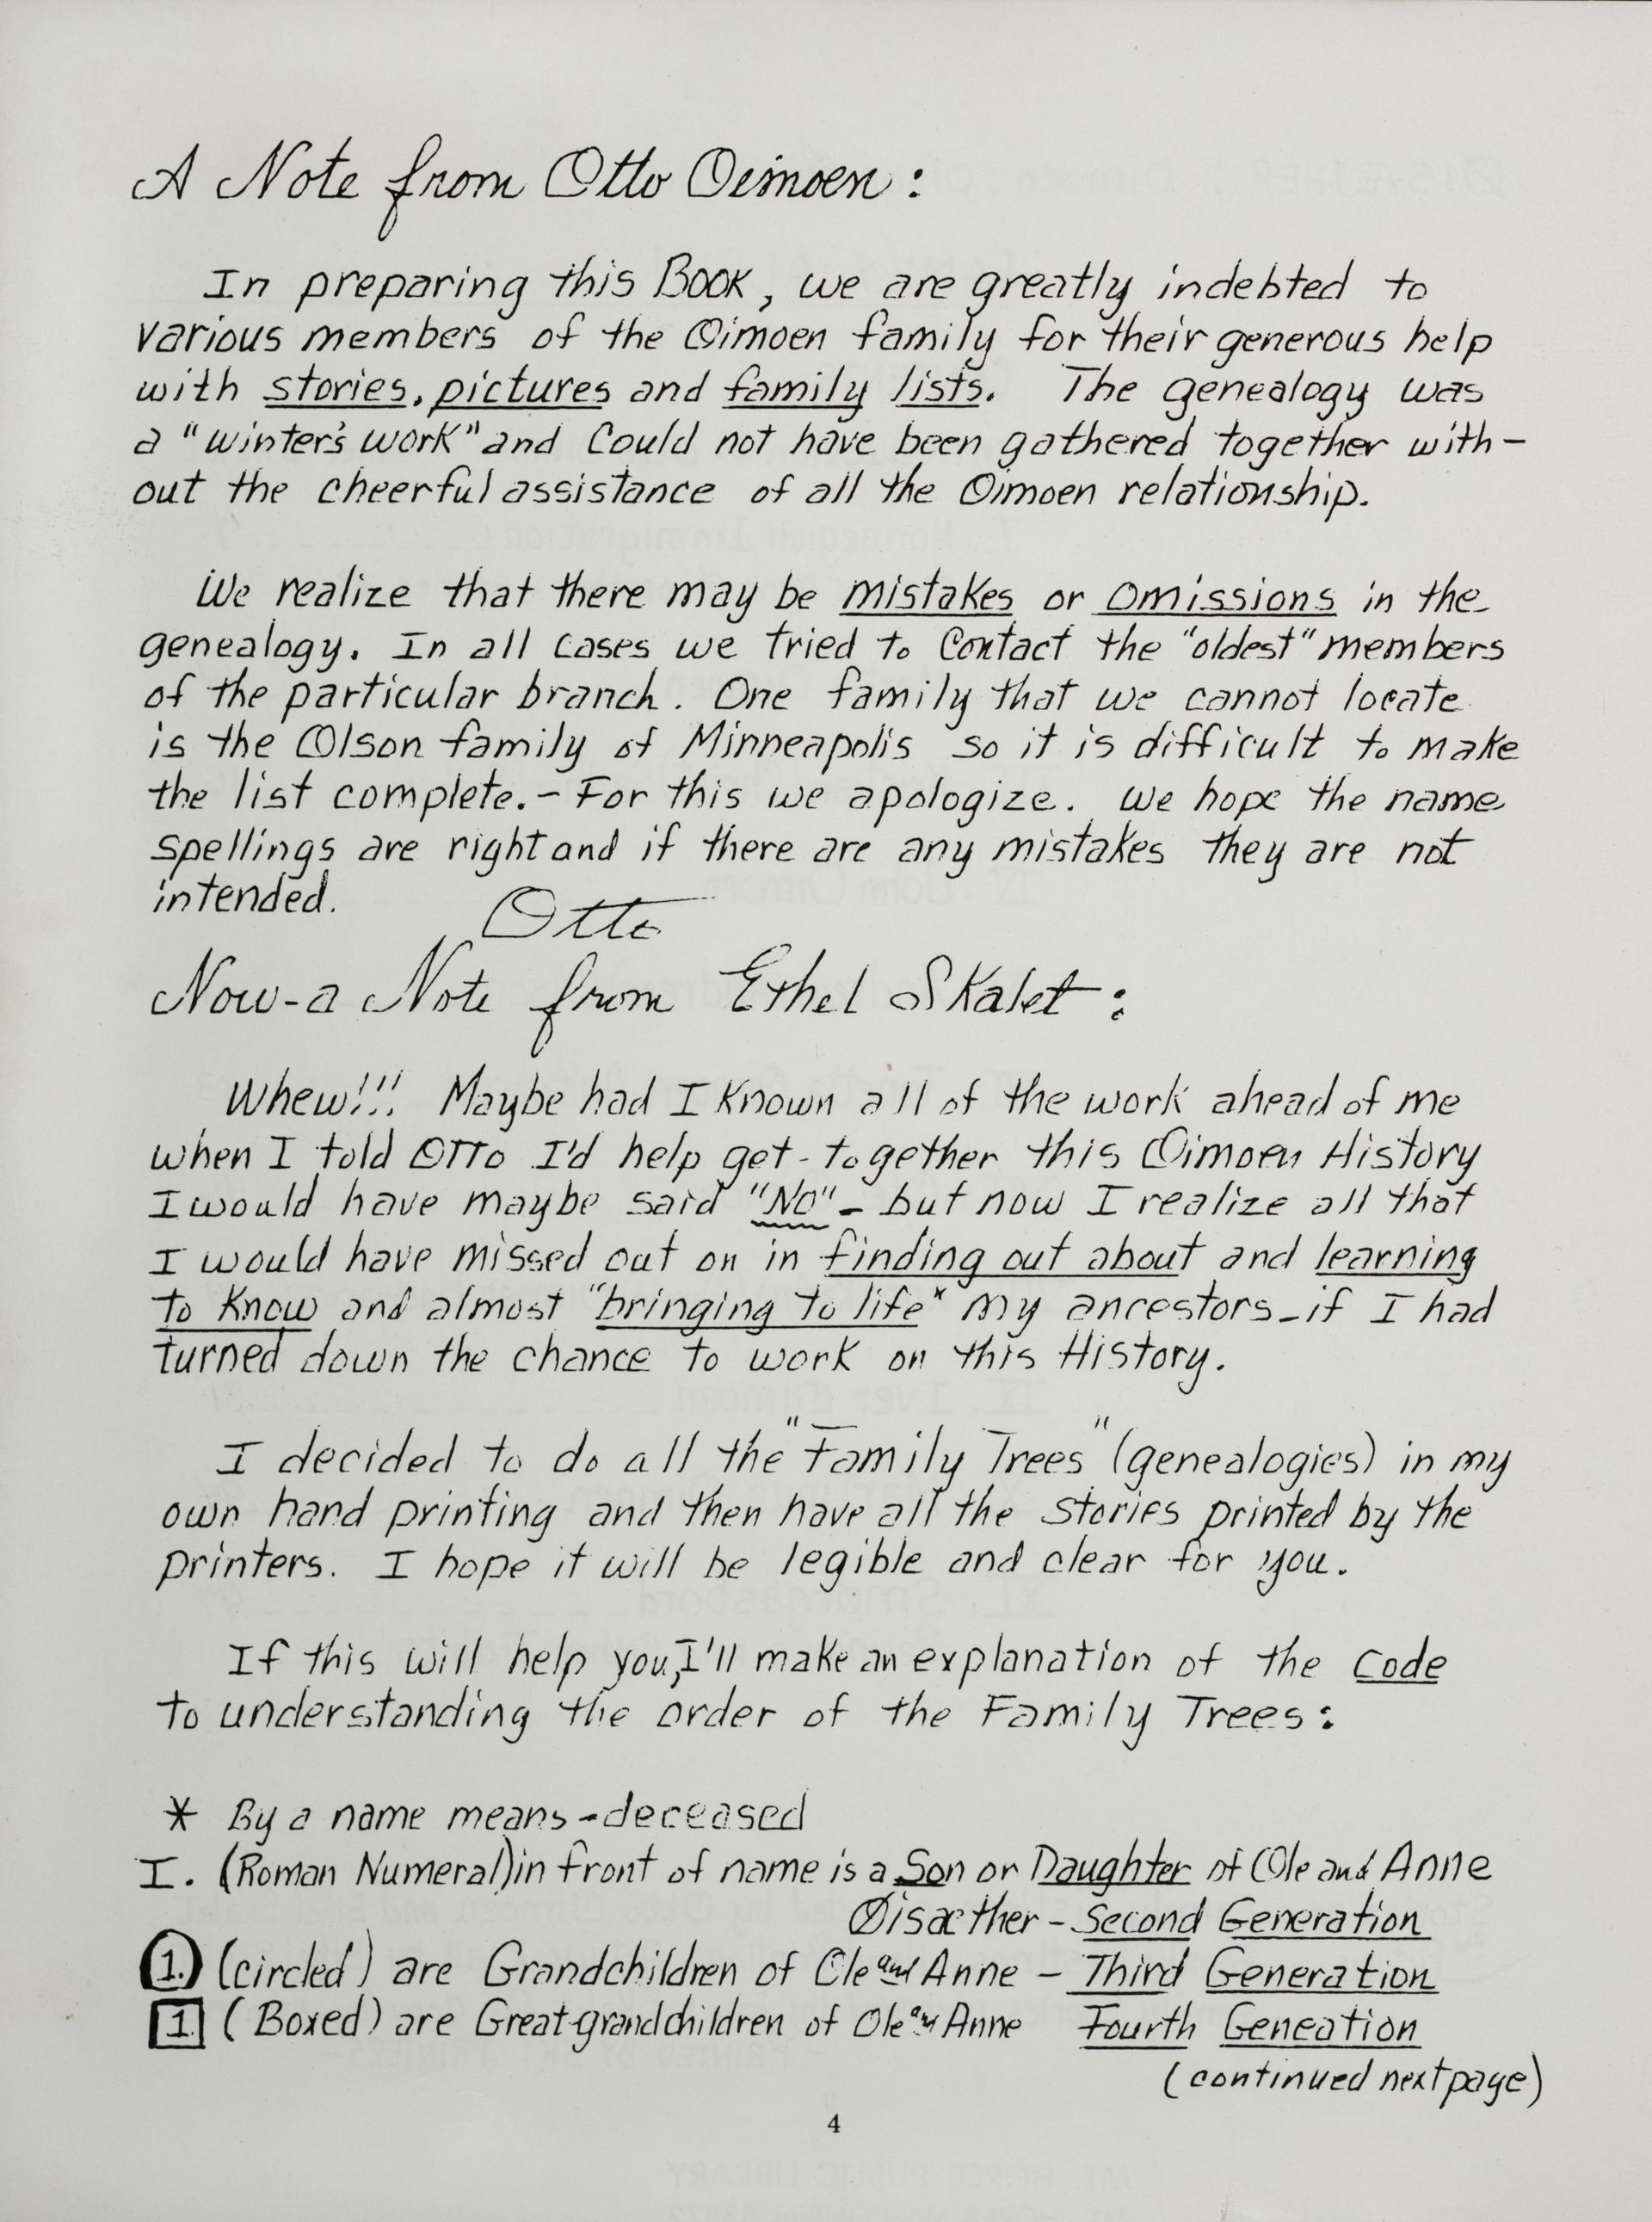 A Note from Otto Oimoen:
In preparing this Book, we are greatly indebted to
various members of the Oimoen family for their generous help
with stories, pictures and family lists. The genealogy was
a "winter's work" and could not have been gathered together with-
out the cheerful assistance of all the Oimoen relationship.
We realize that there may be mistakes or omissions in the
genealogy. In all cases we tried to contact the "oldest" members
of the particular branch. One family that we cannot locate
is the Olson family of Minneapolis so it is difficult to make
the list complete. - For this we apologize. We hope the name
spellings are right and if there are any mistakes they are not
intended.
Otto
Now-a Note from Ethel Skalet:
Whew!!! Maybe had I known all of the work ahead of me
when I told Otto I'd help get-together this Oimoen History
I would have maybe said "No" - but now I realize all that
I would have missed out on in finding out about and learning
to know and almost "bringing to life" my ancestors - if I had
turned down the chance to work on this History.
I decided to do all the "Family Trees" (genealogies) in my
own hand printing and then have all the stories printed by the
printers. I hope it will be legible and clear for you.
If this will help you, I'll make an explanation of the code
to understanding the order of the Family Trees:
* By a name means - deceased
I. (Roman Numeral) in front of name is a Son or Daughter of Ole and Anne
Disæther - Second Generation
1. (circled) are Grandchildren of Ole and Anne - Third Generation
1 (Boxed) are Great-grandchildren of Ole and Anne Fourth Geneation
(continued next page)
4